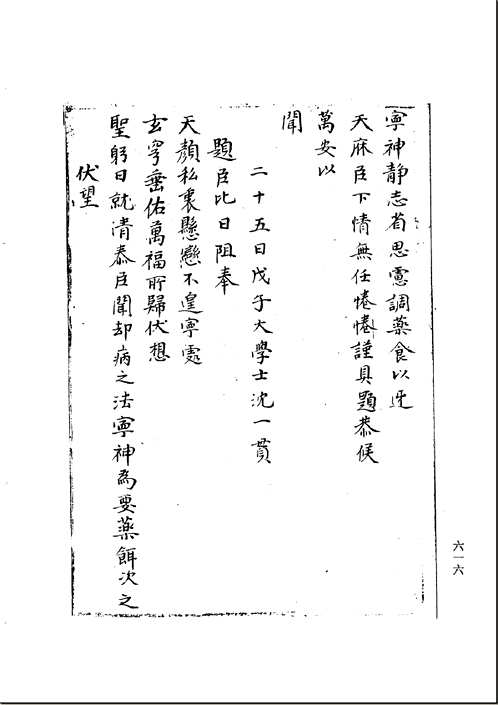 寧神静志省思慮調藥食以迓
天庥臣下情無任惓惓謹具題恭候
萬安以
聞
二十五日戊子大學士沈一貫
題臣比日阻奉
天顏私衷懸戀不遑寧處
玄穹垂佑萬福所歸伏想
聖躬日就清泰臣聞却病之法寧神為要藥餌次之
伏望
六一六